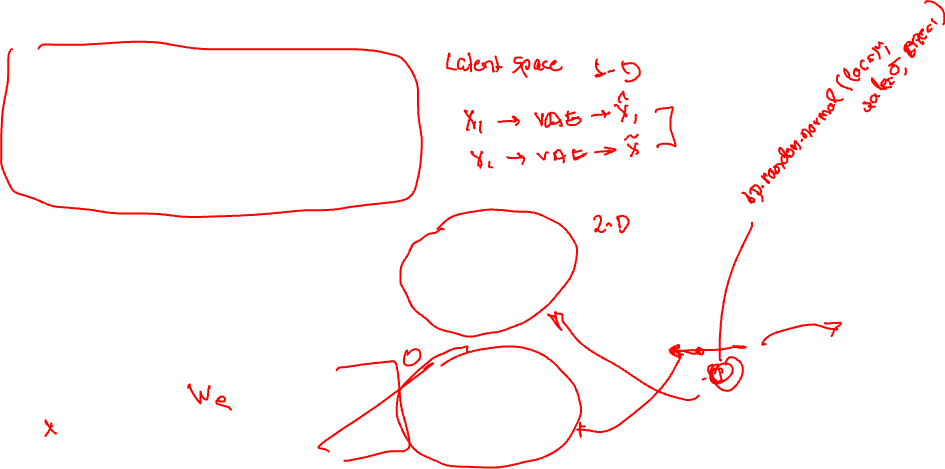 Latent Space 1-D
X₁ → VAE → X̂₁
X₁ → VAE → X̃
np.random.normal (loc=μ,
scale=σ, size=1)
2-D
We
x